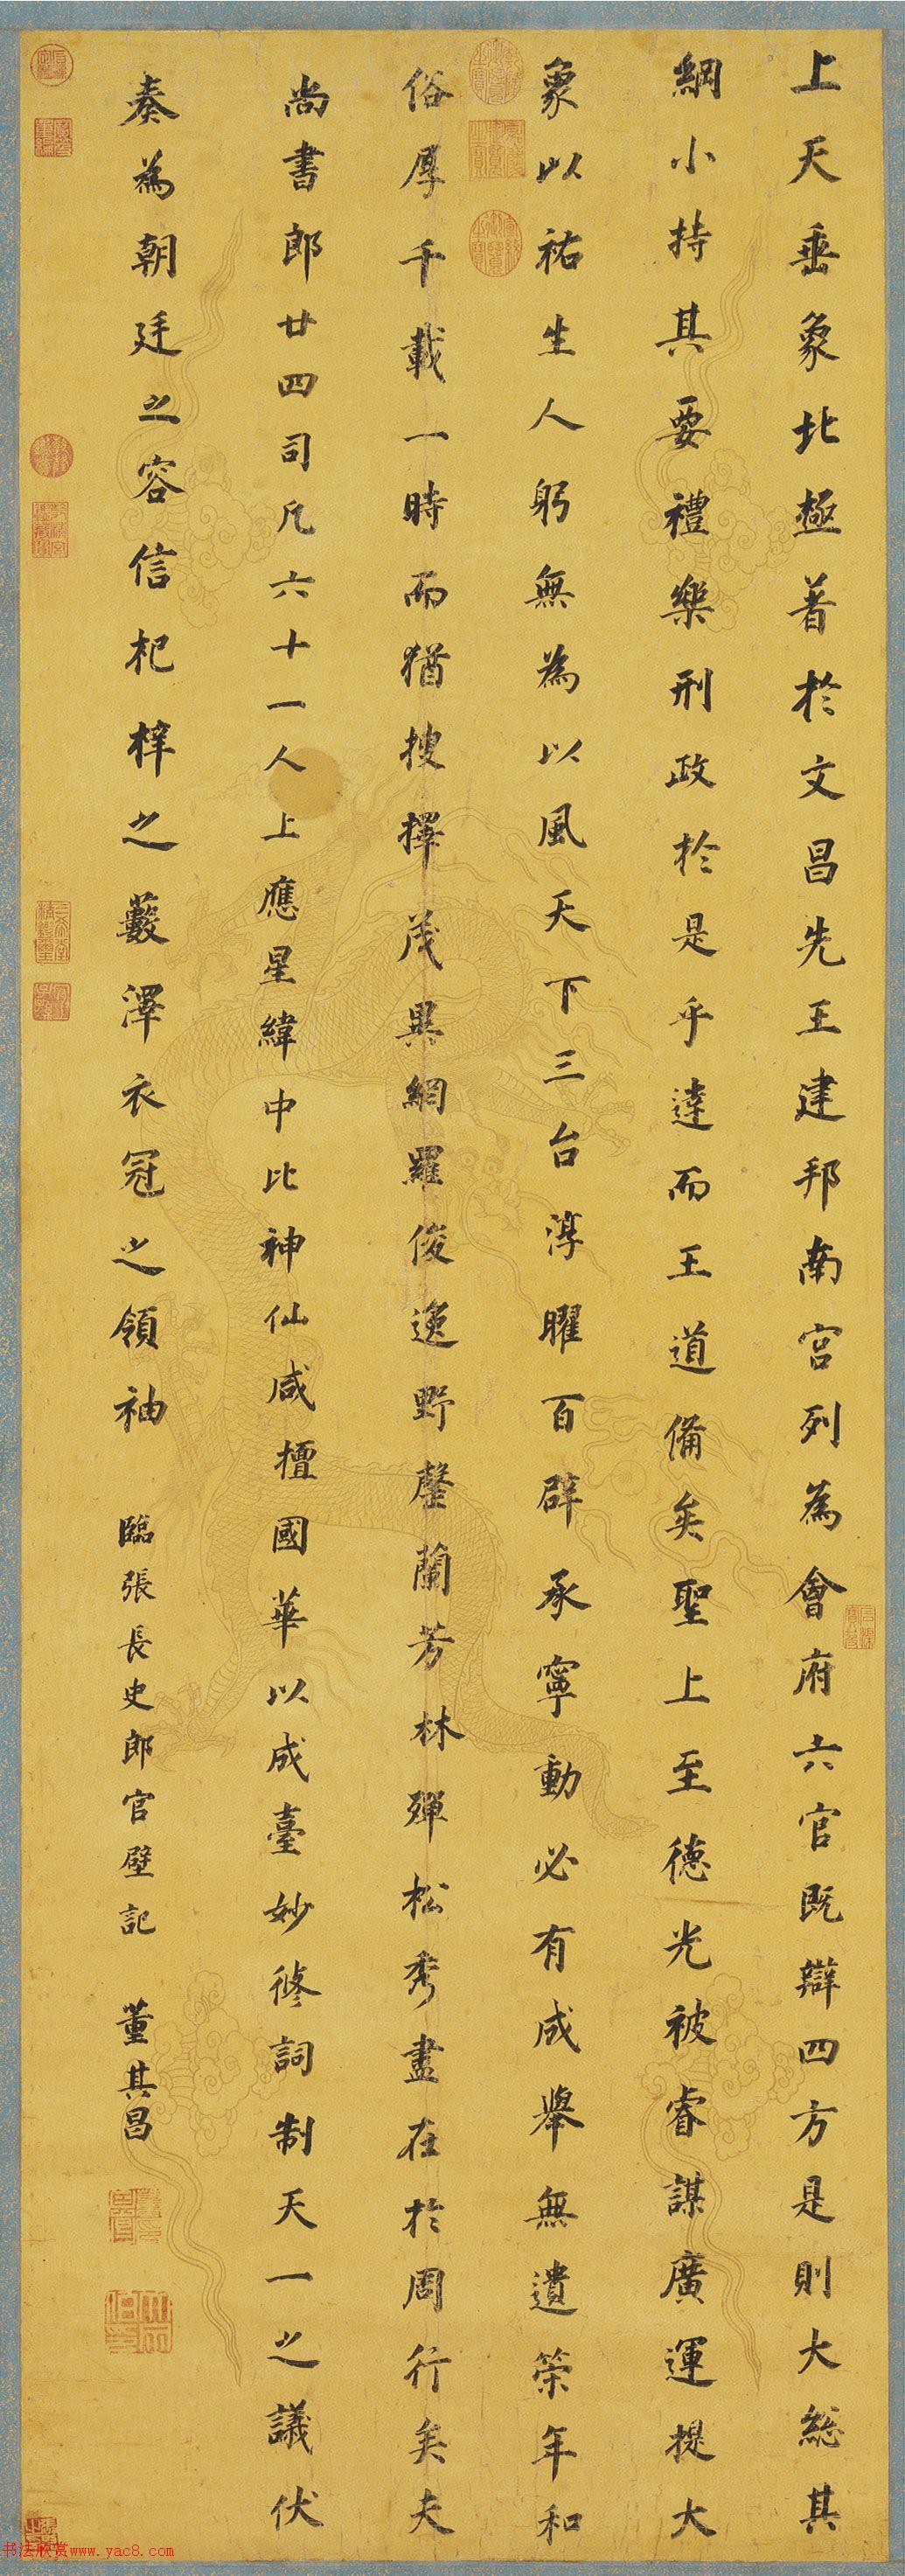 上天垂象北極著於文昌先王建邦南宮列為會府六官既辯四方是則大總其
綱小持其要禮樂刑政於是乎達而王道備矣聖上至德光被睿謀廣運提大
象以祐生人躬無為以風天下三台淳曜百辟承寧動必有成舉無遺策年和
俗厚千載一時而猶搜擇茂異網羅俊逸野罄蘭芳林殫松秀盡在於周行矣夫
尚書郎廿四司凡六十一人上應星緯中比神仙咸擅國華以成臺妙修詞制天一之議伏
奏為朝廷之容信杞梓之藪澤衣冠之領袖 臨張長史郎官壁記 董其昌
书法欣赏www.yac8.com